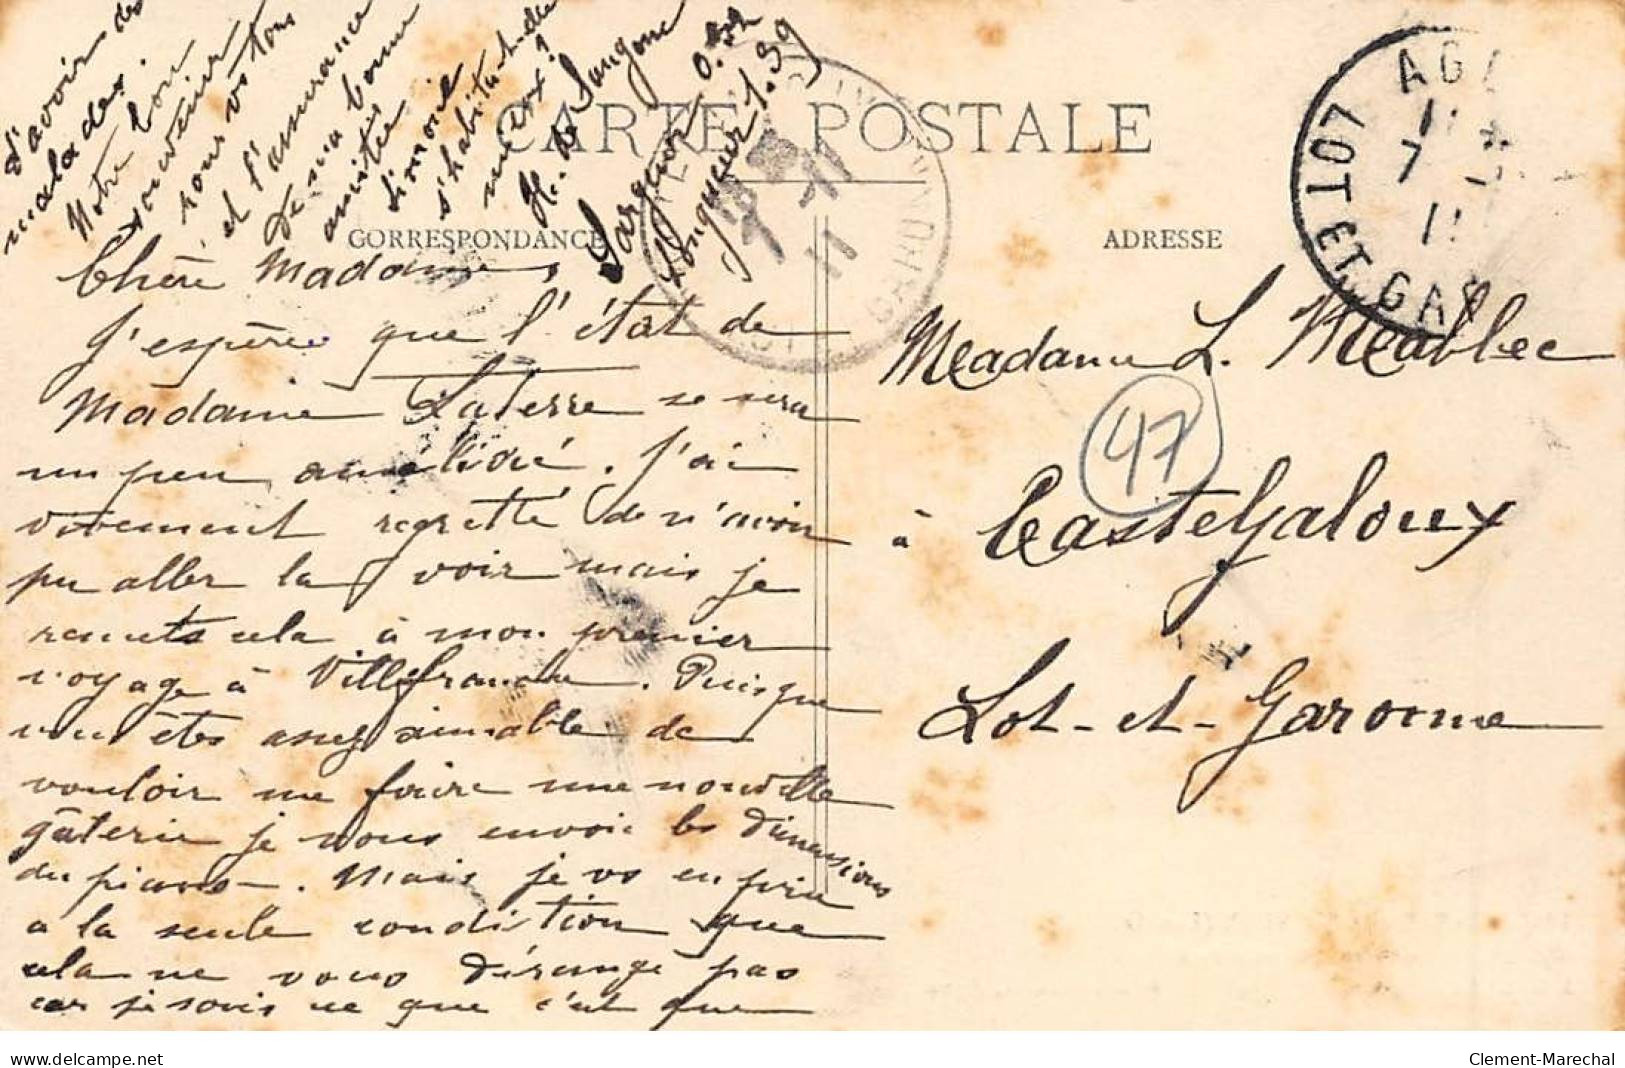 CARTE POSTALE
CORRESPONDANCE
ADRESSE
Chère Madame,
J'espère que l'état de
Madame Laterre se sera
un peu amélioré. J'ai
vivement regretté de n'avoir
pu aller la voir mais je
remets cela à mon premier
voyage à Villefranche. Puisque
vous êtes assez aimable de
vouloir me faire une nouvelle
gâterie je vous envoie les dimensions
du piano. Mais je vs en prie
a la seule condition que
cela ne vous dérange pas
car je sais ce que c'est que
d'avoir des
malades.
Notre bon
souvenir
pour vs tous
et l'assurance
de ma bonne
amitié
Simone
s'habitue-t-elle
mieux?
H. de
Largeur 0.52
Longueur 1.39
Madame L. Meallec
à Casteljaloux
Lot-et-Garonne
47
LOT ET GAR
7
11
delcampe.net
Clement-Marechal